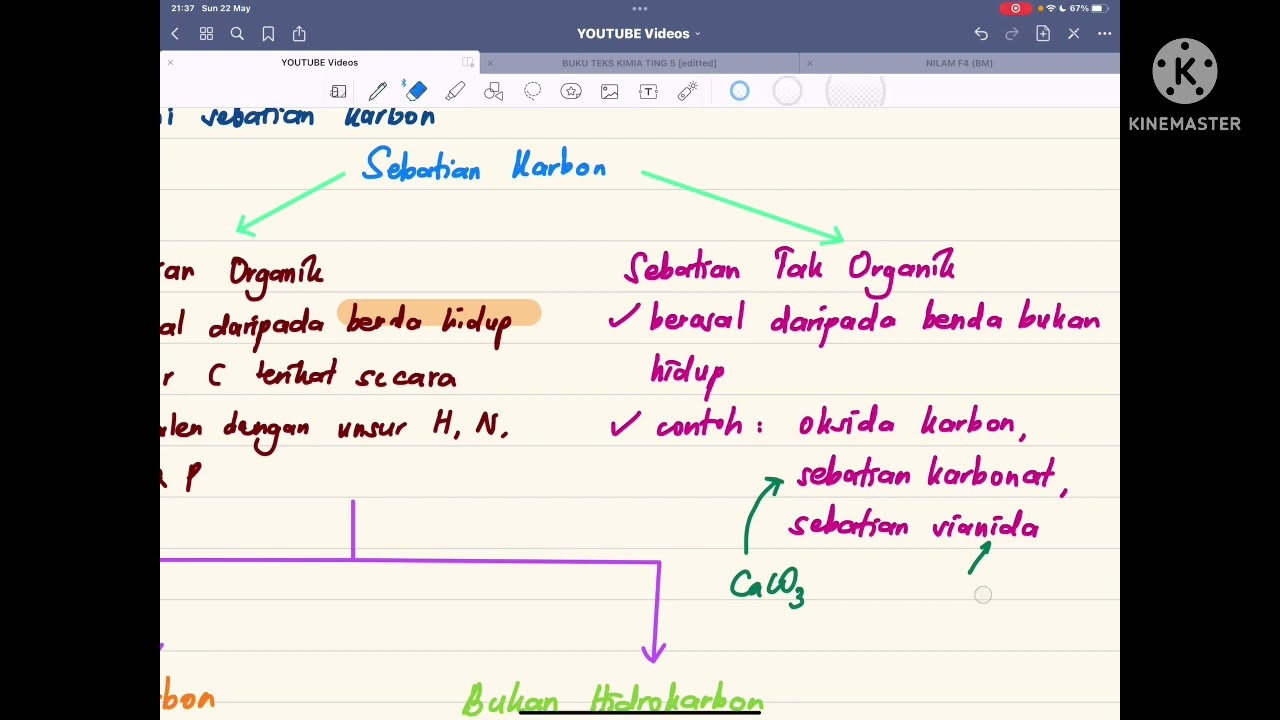 21:37 Sun 22 May
67%
YOUTUBE Videos
YOUTUBE Videos
BUKU TEKS KIMIA TING 5 [editted]
NILAM F4 (BM)
KINEMASTER
sebatian karbon
Sebatian Karbon
Organik
daripada benda hidup
C terikat secara
dengan unsur H, N,
P
Sebatian Tak Organik
✓ berasal daripada benda bukan
hidup
✓ contoh : oksida karbon,
sebatian karbonat,
sebatian sianida
CaCO3
bon
Bukan Hidrokarbon